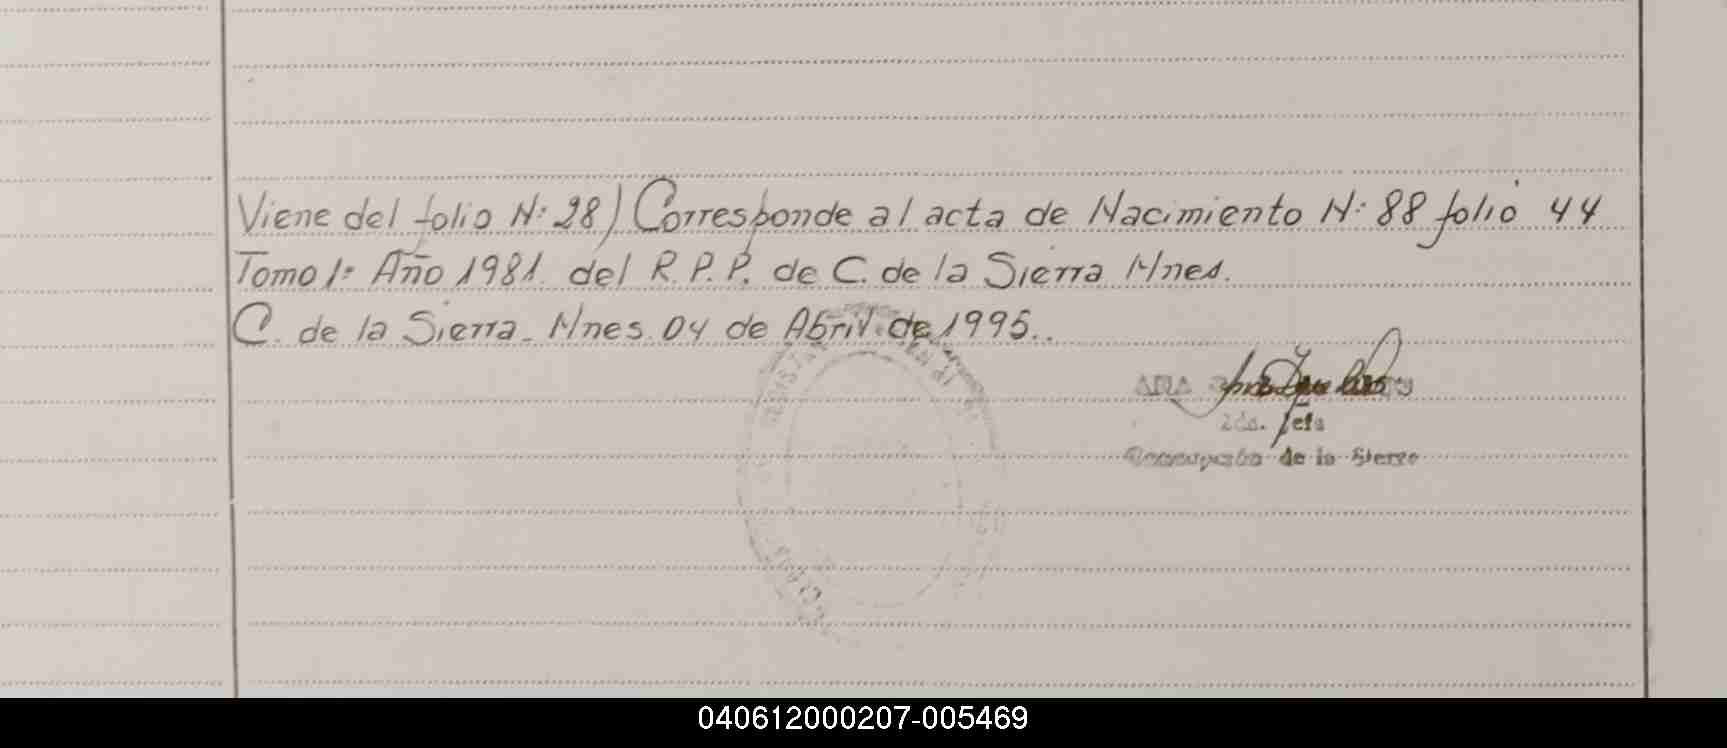 Viene del folio N: 28) Corresponde al acta de Nacimiento N: 88 folio 44
Tomo 1: Año 1981 del R. P. P. de C. de la Sierra Mnes.
C. de la Sierra - Mnes. 04 de Abril de 1995..
ANA
2da. Jefa
Concepción de la Sierra
040612000207-005469